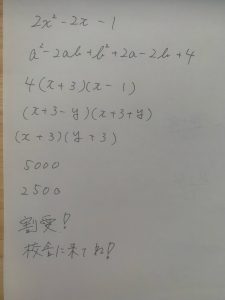 2x² - 2x - 1
a² - 2ab + b² + 2a - 2b + 4
4(x+3)(x-1)
(x+3-y)(x+3+y)
(x+3)(y+3)
5000
2500
割愛!
校舎に来てね!